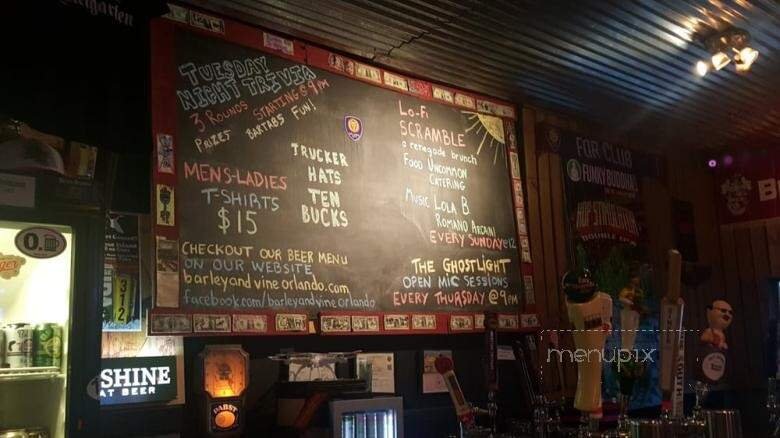 TUESDAY
NIGHT TRIVIA
3 ROUNDS STARTING @ 9PM
PRIZES BARTABS FUN!
MENS-LADIES
T-SHIRTS
$15
TRUCKER
HATS
TEN
BUCKS
CHECKOUT OUR BEER MENU
ON OUR WEBSITE
barleyandvineorlando.com
facebook.com/barleyandvineorlando
LO-FI
SCRAMBLE
a renegade brunch
FOOD UNCOMMON
CATERING
MUSIC LOLA B
EVERY SUNDAY @12
THE GHOSTLIGHT
OPEN MIC SESSIONS
EVERY THURSDAY @ 9PM
FOR CLUB
FUNKY BUDDHA
SHINE
AT BEER
PABST
312
menupix